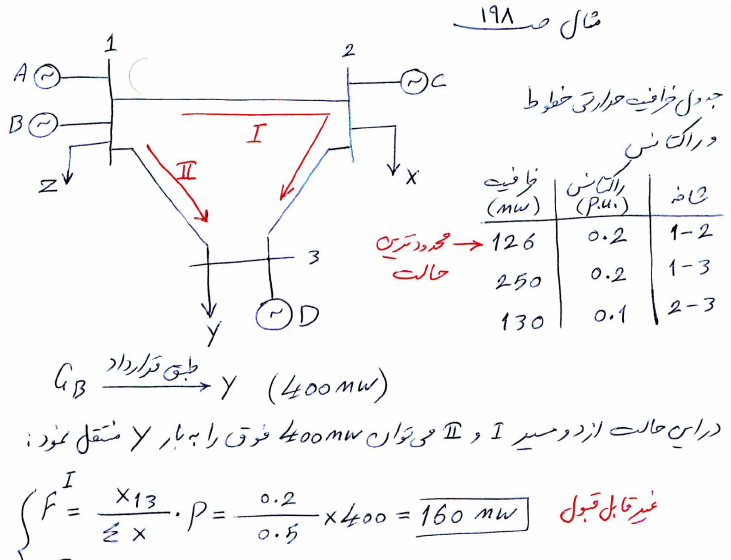 مثال ص ۱۹۸
1
2
A
B
C
Z
X
I
II
3
Y
D
جدول ظرفیت حرارتی خطوط
و راکتانس
شاخه راکتانس (p.u.) ظرفیت (MW)
1-2 0.2 126 ← محدودترین حالت
1-3 0.2 250
2-3 0.1 130
G_B طبق قرارداد → Y (400 MW)
در این حالت از دو مسیر I و II می‌توان 400 MW فوق را به بار Y منتقل نمود:
F^I = X_13 / Σ X · P = 0.2 / 0.5 × 400 = 160 MW غیر قابل قبول